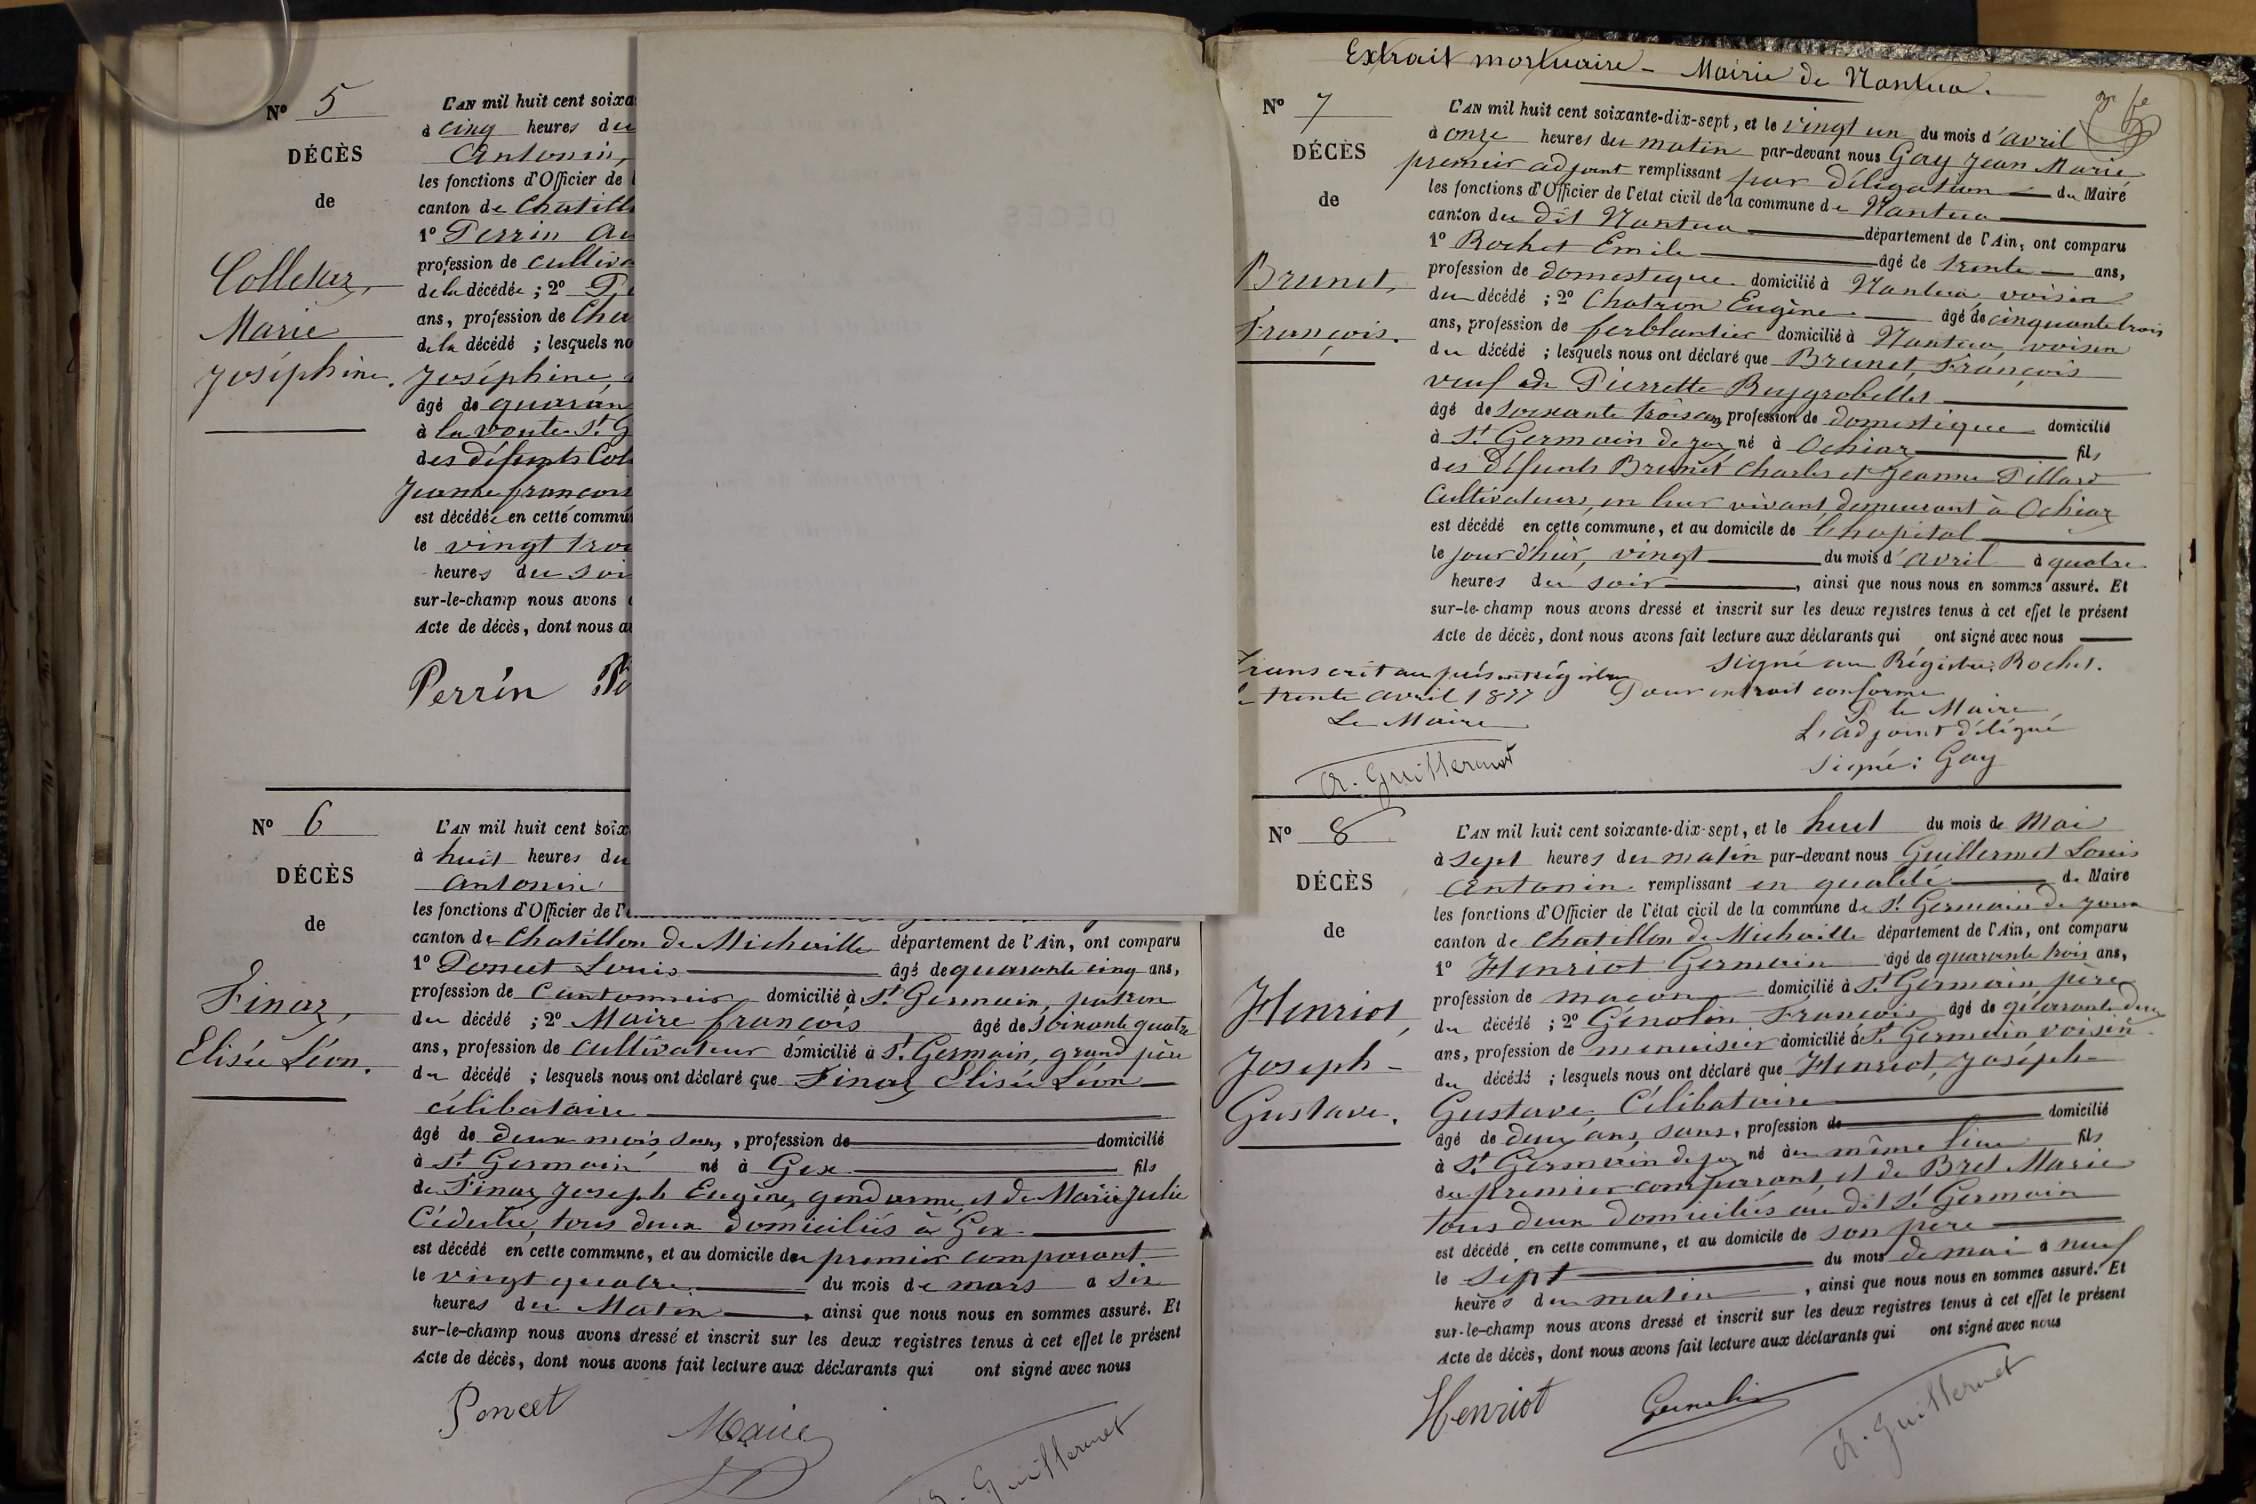 Nº 5
DÉCÈS
de
Colletaz,
Marie
Joséphine.
L'AN mil huit cent soixa
à cinq heures du
Antonin,
les fonctions d'Officier de
canton de Chatill
1º Perrin Au
profession de cultiva
de la décédée ; 2º
ans, profession de
de la décédé ; lesquels no
Joséphine,
âgé de quaran
à la voute St. G
des défunts Col
Jeanne françois
est décédée en cette commu
le vingt troi
heures du soi
sur-le-champ nous avons
Acte de décès, dont nous a
Perrin
Nº 6
DÉCÈS
de
Finaz,
Elisée Léon.
L'AN mil huit cent soix
à huit heures du
Antonin
les fonctions d'Officier de l'
canton de Chatillon de Michaille département de l'Ain, ont comparu
1º Poncet Louis âgé de quarante cinq ans,
profession de Cantonnier domicilié à St. Germain, patron
du décédé ; 2º Maire françois âgé de Soixante quatre
ans, profession de Cultivateur domicilié à St. Germain, grand père
du décédé ; lesquels nous ont déclaré que Finaz Elisée Léon
célibataire
âgé de deux mois sans, profession de domicilié
à St. Germain né à Gex fils
de Finaz Joseph Eugène, gendarme, et de Marie Julie
tous deux domiciliés à Gex
est décédé en cette commune, et au domicile du premier comparant
le vingt quatre du mois de mars à Six
heures du Matin, ainsi que nous nous en sommes assuré. Et
sur-le-champ nous avons dressé et inscrit sur les deux registres tenus à cet effet le présent
Acte de décès, dont nous avons fait lecture aux déclarants qui ont signé avec nous
Poncet
Maire
A. Guillermet
Extrait mortuaire - Mairie de Nantua.
Nº 7
DÉCÈS
de
Brunet,
François.
L'AN mil huit cent soixante-dix-sept, et le vingt un du mois d'avril
à onze heures du matin par-devant nous Gay Jean Marie
premier adjoint remplissant par délégation du Mairé
les fonctions d'Officier de l'état civil de la commune de Nantua
canton du dit Nantua département de l'Ain, ont comparu
1º Rochet Emile âgé de trente ans,
profession de domestique domicilié à Nantua, voisin
du décédé ; 2º Chatron Eugène âgé de cinquante trois
ans, profession de ferblantier domicilié à Nantua, voisin
du décédé ; lesquels nous ont déclaré que Brunet, François
veuf de Pierrette Buygrobellet
âgé de soixante trois ans, profession de domestique domicilié
à St. Germain de Joux né à Ochiaz fils
des défunts Brunet Charles et Jeanne Pillard
Cultivateurs, en leur vivant, demeurant à Ochiaz
est décédé en cette commune, et au domicile de l'hopital
le jour d'hier, vingt du mois d'avril à quatre
heures du soir, ainsi que nous nous en sommes assuré. Et
sur-le-champ nous avons dressé et inscrit sur les deux registres tenus à cet effet le présent
Acte de décès, dont nous avons fait lecture aux déclarants qui ont signé avec nous
Signé au Régistre: Rochet.
Transcrit au présent régistre
Pour extrait conforme
le trente avril 1877
P. le Maire
Le Maire
L'adjoint délégué
A. Guillermet
Signé: Gay
Nº 8
DÉCÈS
de
Henriot,
Joseph-
Gustave.
L'AN mil huit cent soixante-dix-sept, et le huit du mois de Mai
à sept heures du matin par-devant nous Guillermet Louis
Antonin remplissant en qualité de Maire
les fonctions d'Officier de l'état civil de la commune de St. Germain de Joux
canton de Chatillon de Michaille département de l'Ain, ont comparu
1º Henriot Germain âgé de quarante trois ans,
profession de maçon domicilié à St. Germain, père
du décédé ; 2º Génolin François âgé de quarante deux
ans, profession de menuisier domicilié à St. Germain voisin
du décédé ; lesquels nous ont déclaré que Henriot, Joseph-
Gustave, Célibataire
âgé de deux ans, sans, profession de domicilié
à St. Germain de Joux né au même lieu fils
du premier comparant, et de Bret Marie
tous deux domiciliés au dit St. Germain
est décédé en cette commune, et au domicile de son père
le sept du mois de mai à neuf
heures du matin, ainsi que nous nous en sommes assuré. Et
sur-le-champ nous avons dressé et inscrit sur les deux registres tenus à cet effet le présent
Acte de décès, dont nous avons fait lecture aux déclarants qui ont signé avec nous
Henriot
Genolin
A. Guillermet